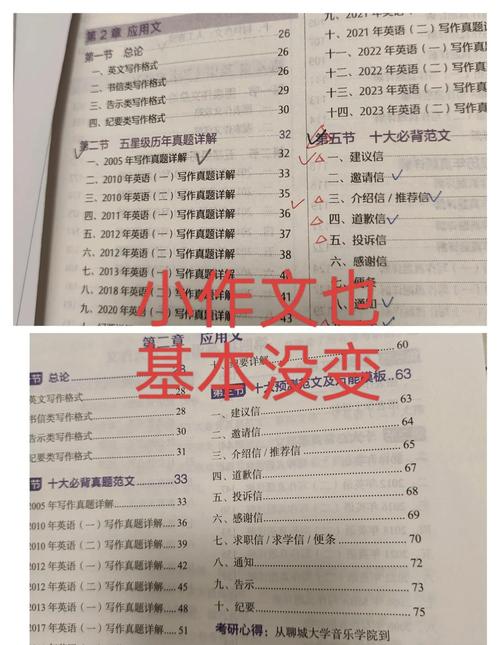 第2章 应用文 26
第一节 总论 26
一、英文写作格式 26
二、书信类写作格式 26
三、告示类写作格式 29
四、纪要类写作格式 30
第二节 五星级历年真题详解 32
一、2005年写作真题详解 32
二、2010年英语（一）写作真题详解 33
三、2010年英语（二）写作真题详解 35
四、2011年英语（一）写作真题详解 36
五、2012年英语（一）写作真题详解 37
六、2012年英语（二）写作真题详解 38
七、2013年英语（一）写作真题详解 40
八、2018年英语（一）写作真题详解 41
九、2020年英语（一）写作真题详解 43
十、2021年英语（一）
十一、2021年英语（二）写
十二、2022年英语（一）写
十三、2022年英语（二）写
十四、2023年英语（一）写
第五节 十大必背范文
一、建议信
二、邀请信
三、介绍信/推荐信
四、道歉信
五、投诉信
六、感谢信
便条
八、通知
小作文也
基本没变
第二章 应用文
节 总论 28
英文写作格式 28
书信类写作格式 28
告示类写作格式 30
纪要类写作格式 31
节 十大必背真题范文 33
2005年写作真题详解 33
2010年英语（一）写作真题详解 36
2010年英语（二）写作真题详解 39
2012年英语（一）写作真题详解 42
2012年英语（二）写作真题详解 45
2013年英语（一）写作真题详解 48
2017年英语（一）写作真题详解 51
十、纪要详解 60
十大预测范文及功能模板 63
一、建议信 63
二、邀请信 64
三、介绍信/推荐信 65
四、道歉信 67
五、投诉信 68
六、感谢信 69
七、求职信/求学信/便条 70
八、通知 72
九、告示 73
十、纪要 75
考研心得：从聊城大学音乐学院到